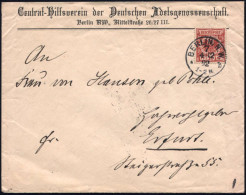 Central-Hilfsverein der Deutschen Adelsgenossenschaft.
Berlin NW, Mittelstraße 26/27 III.
BERLIN
An
Frau von Hansen geb.
Hochwohlgeboren
Erfurt.
Steigerstraße 55.